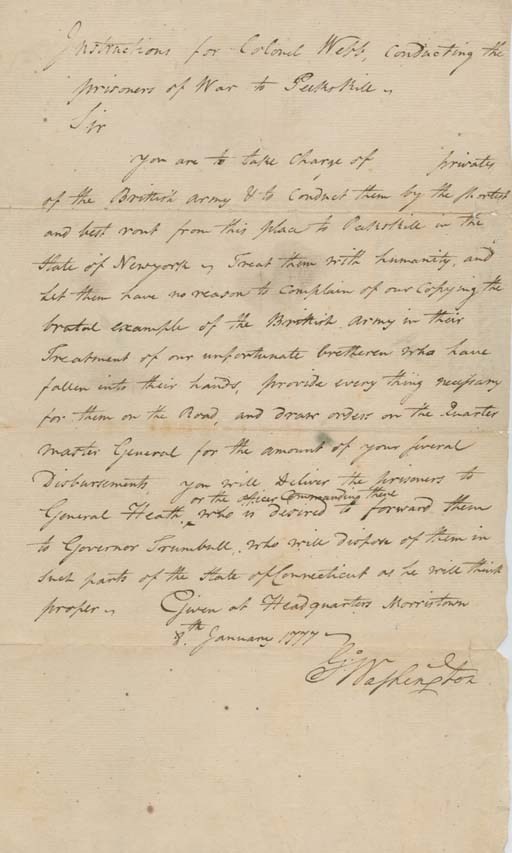 Instructions for Colonel Webb, conducting the
prisoners of War to Peekskill
Sir
you are to take charge of privates
of the Brittish army & to conduct them by the shortest
and best rout from this place to Peekskill in the
State of Newyork Treat them with humanity, and
Let them have no reason to Complain of our Copying the
brutal example of the Brittish army in their
Treatment of our unfortunate bretheren who have
fallen into their hands, provide every thing necessary
for them on the Road, and draw orders on the Quarter
master General for the amount of your several
Disbursements you will deliver the prisoners to
or the officer Commanding there
General Heath, who is desired to forward them
to Governor Trumbull, who will dispose of them in
such parts of the State of Connecticut as he will think
proper Given at Headquarters Morristown
8th January 1777
Go Washington